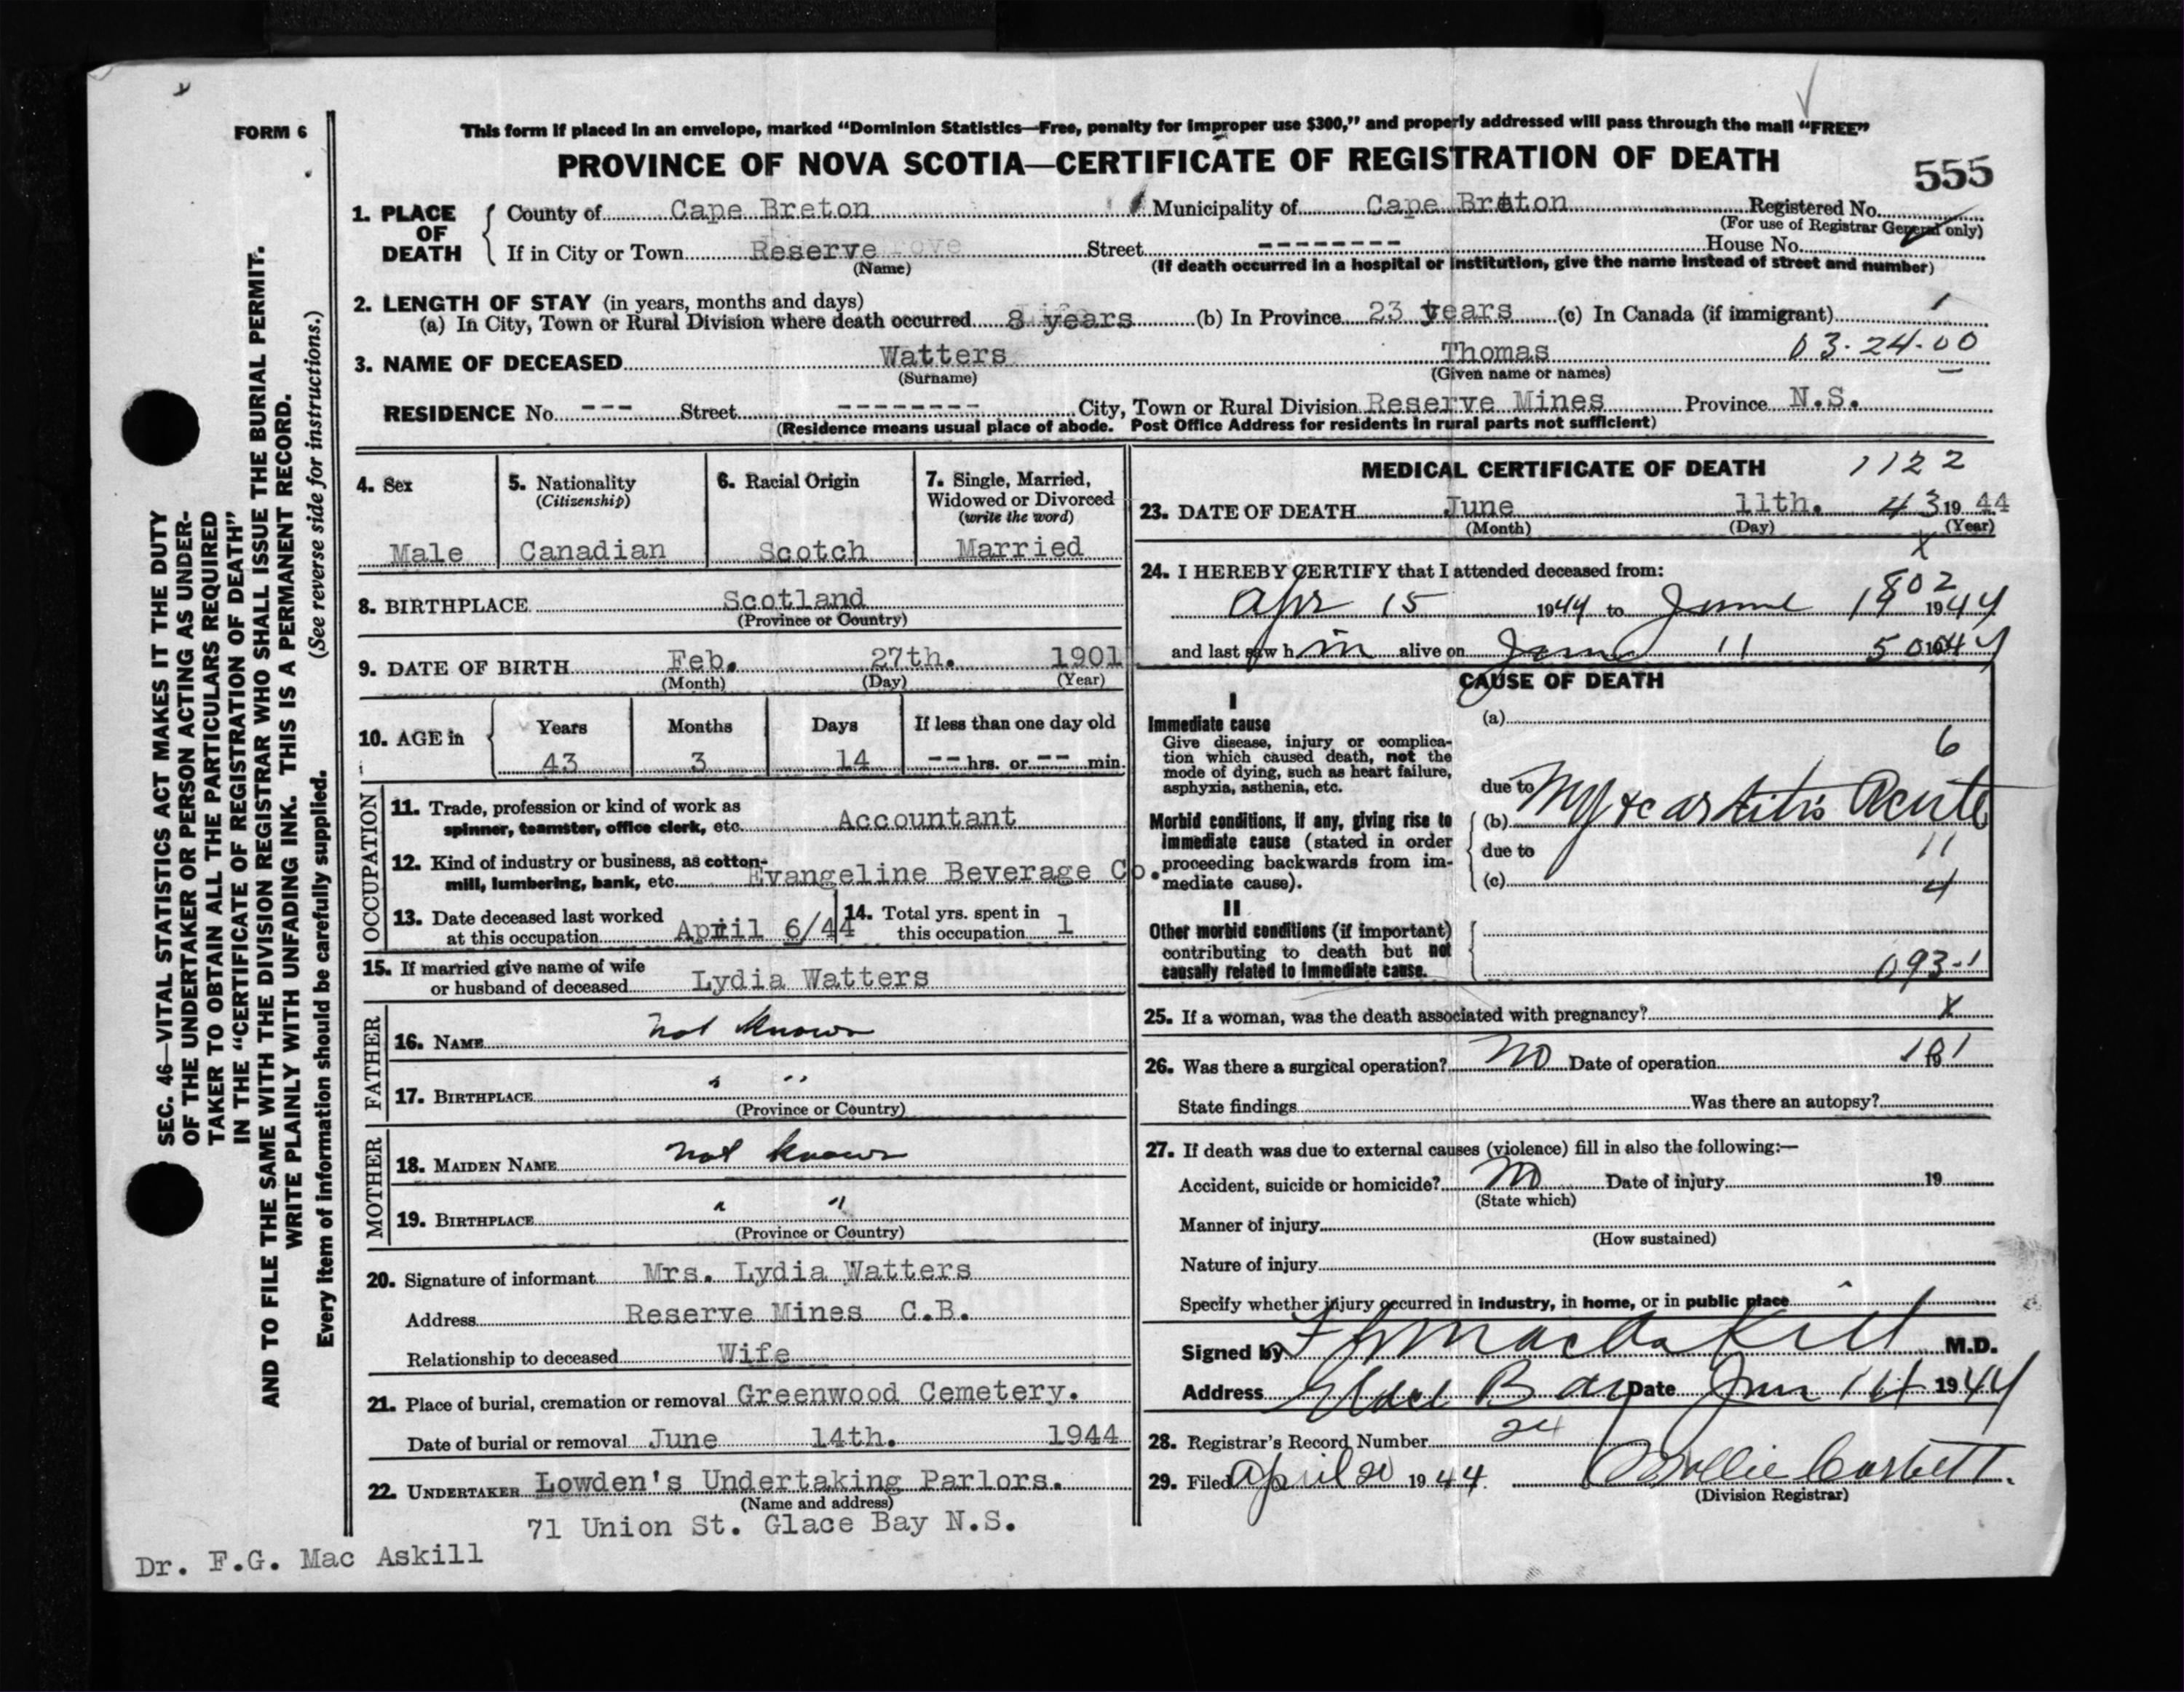 FORM 6
This form if placed in an envelope, marked “Dominion Statistics—Free, penalty for improper use $300,” and properly addressed will pass through the mail “FREE”
PROVINCE OF NOVA SCOTIA—CERTIFICATE OF REGISTRATION OF DEATH
555
1. PLACE OF DEATH
County of Cape Breton Municipality of Cape Breton Registered No.
(For use of Registrar General only)
If in City or Town Reserve Street -------- House No.
(Name) (If death occurred in a hospital or institution, give the name instead of street and number)
2. LENGTH OF STAY (in years, months and days)
(a) In City, Town or Rural Division where death occurred 8 years (b) In Province 23 years (c) In Canada (if immigrant) 1
3. NAME OF DECEASED Watters Thomas 03-24-00
(Surname) (Given name or names)
RESIDENCE No. --- Street -------- City, Town or Rural Division Reserve Mines Province N.S.
(Residence means usual place of abode. Post Office Address for residents in rural parts not sufficient)
4. Sex
Male
5. Nationality
(Citizenship)
Canadian
6. Racial Origin
Scotch
7. Single, Married,
Widowed or Divorced
(write the word)
Married
8. BIRTHPLACE Scotland
(Province or Country)
9. DATE OF BIRTH Feb. 27th. 1901
(Month) (Day) (Year)
10. AGE in
Years Months Days If less than one day old
43 3 14 -- hrs. or -- min.
OCCUPATION
11. Trade, profession or kind of work as
spinner, teamster, office clerk, etc. Accountant
12. Kind of industry or business, as cotton-
mill, lumbering, bank, etc. Evangeline Beverage Co.
13. Date deceased last worked
at this occupation April 6/44
14. Total yrs. spent in
this occupation 1
15. If married give name of wife
or husband of deceased Lydia Watters
FATHER
16. NAME not known
17. BIRTHPLACE " "
(Province or Country)
MOTHER
18. MAIDEN NAME not known
19. BIRTHPLACE " "
(Province or Country)
20. Signature of informant Mrs. Lydia Watters
Address Reserve Mines C.B.
Relationship to deceased Wife
21. Place of burial, cremation or removal Greenwood Cemetery.
Date of burial or removal June 14th. 1944
22. UNDERTAKER Lowden's Undertaking Parlors.
(Name and address)
71 Union St. Glace Bay N.S.
Dr. F.G. Mac Askill
MEDICAL CERTIFICATE OF DEATH 1122
23. DATE OF DEATH June 11th. 43 1944
(Month) (Day) (Year)
x
24. I HEREBY CERTIFY that I attended deceased from:
802
Apr 15 1944 to June 11 1944
and last saw h im alive on June 11 50 1944
CAUSE OF DEATH
I
Immediate cause
Give disease, injury or complica-
tion which caused death, not the
mode of dying, such as heart failure,
asphyxia, asthenia, etc.
(a)
6
due to
Morbid conditions, if any, giving rise to
immediate cause (stated in order
proceeding backwards from im-
mediate cause).
(b) Myocarditis Acute
due to 11
(c) 4
II
Other morbid conditions (if important)
contributing to death but not
causally related to immediate cause.
093-1
25. If a woman, was the death associated with pregnancy? x
26. Was there a surgical operation? No Date of operation 19
State findings Was there an autopsy?
27. If death was due to external causes (violence) fill in also the following:—
Accident, suicide or homicide? No Date of injury 19
(State which)
Manner of injury
(How sustained)
Nature of injury
Specify whether injury occurred in industry, in home, or in public place
Signed by F G MacAskill M.D.
Address Glace Bay Date Jun 14 1944
28. Registrar's Record Number 24
29. Filed April 20 1944 Mollie Corbett.
(Division Registrar)
SEC. 46—VITAL STATISTICS ACT MAKES IT THE DUTY
OF THE UNDERTAKER OR PERSON ACTING AS UNDER-
TAKER TO OBTAIN ALL THE PARTICULARS REQUIRED
IN THE “CERTIFICATE OF REGISTRATION OF DEATH”
AND TO FILE THE SAME WITH THE DIVISION REGISTRAR WHO SHALL ISSUE THE BURIAL PERMIT.
WRITE PLAINLY WITH UNFADING INK. THIS IS A PERMANENT RECORD.
Every item of information should be carefully supplied. (See reverse side for instructions.)